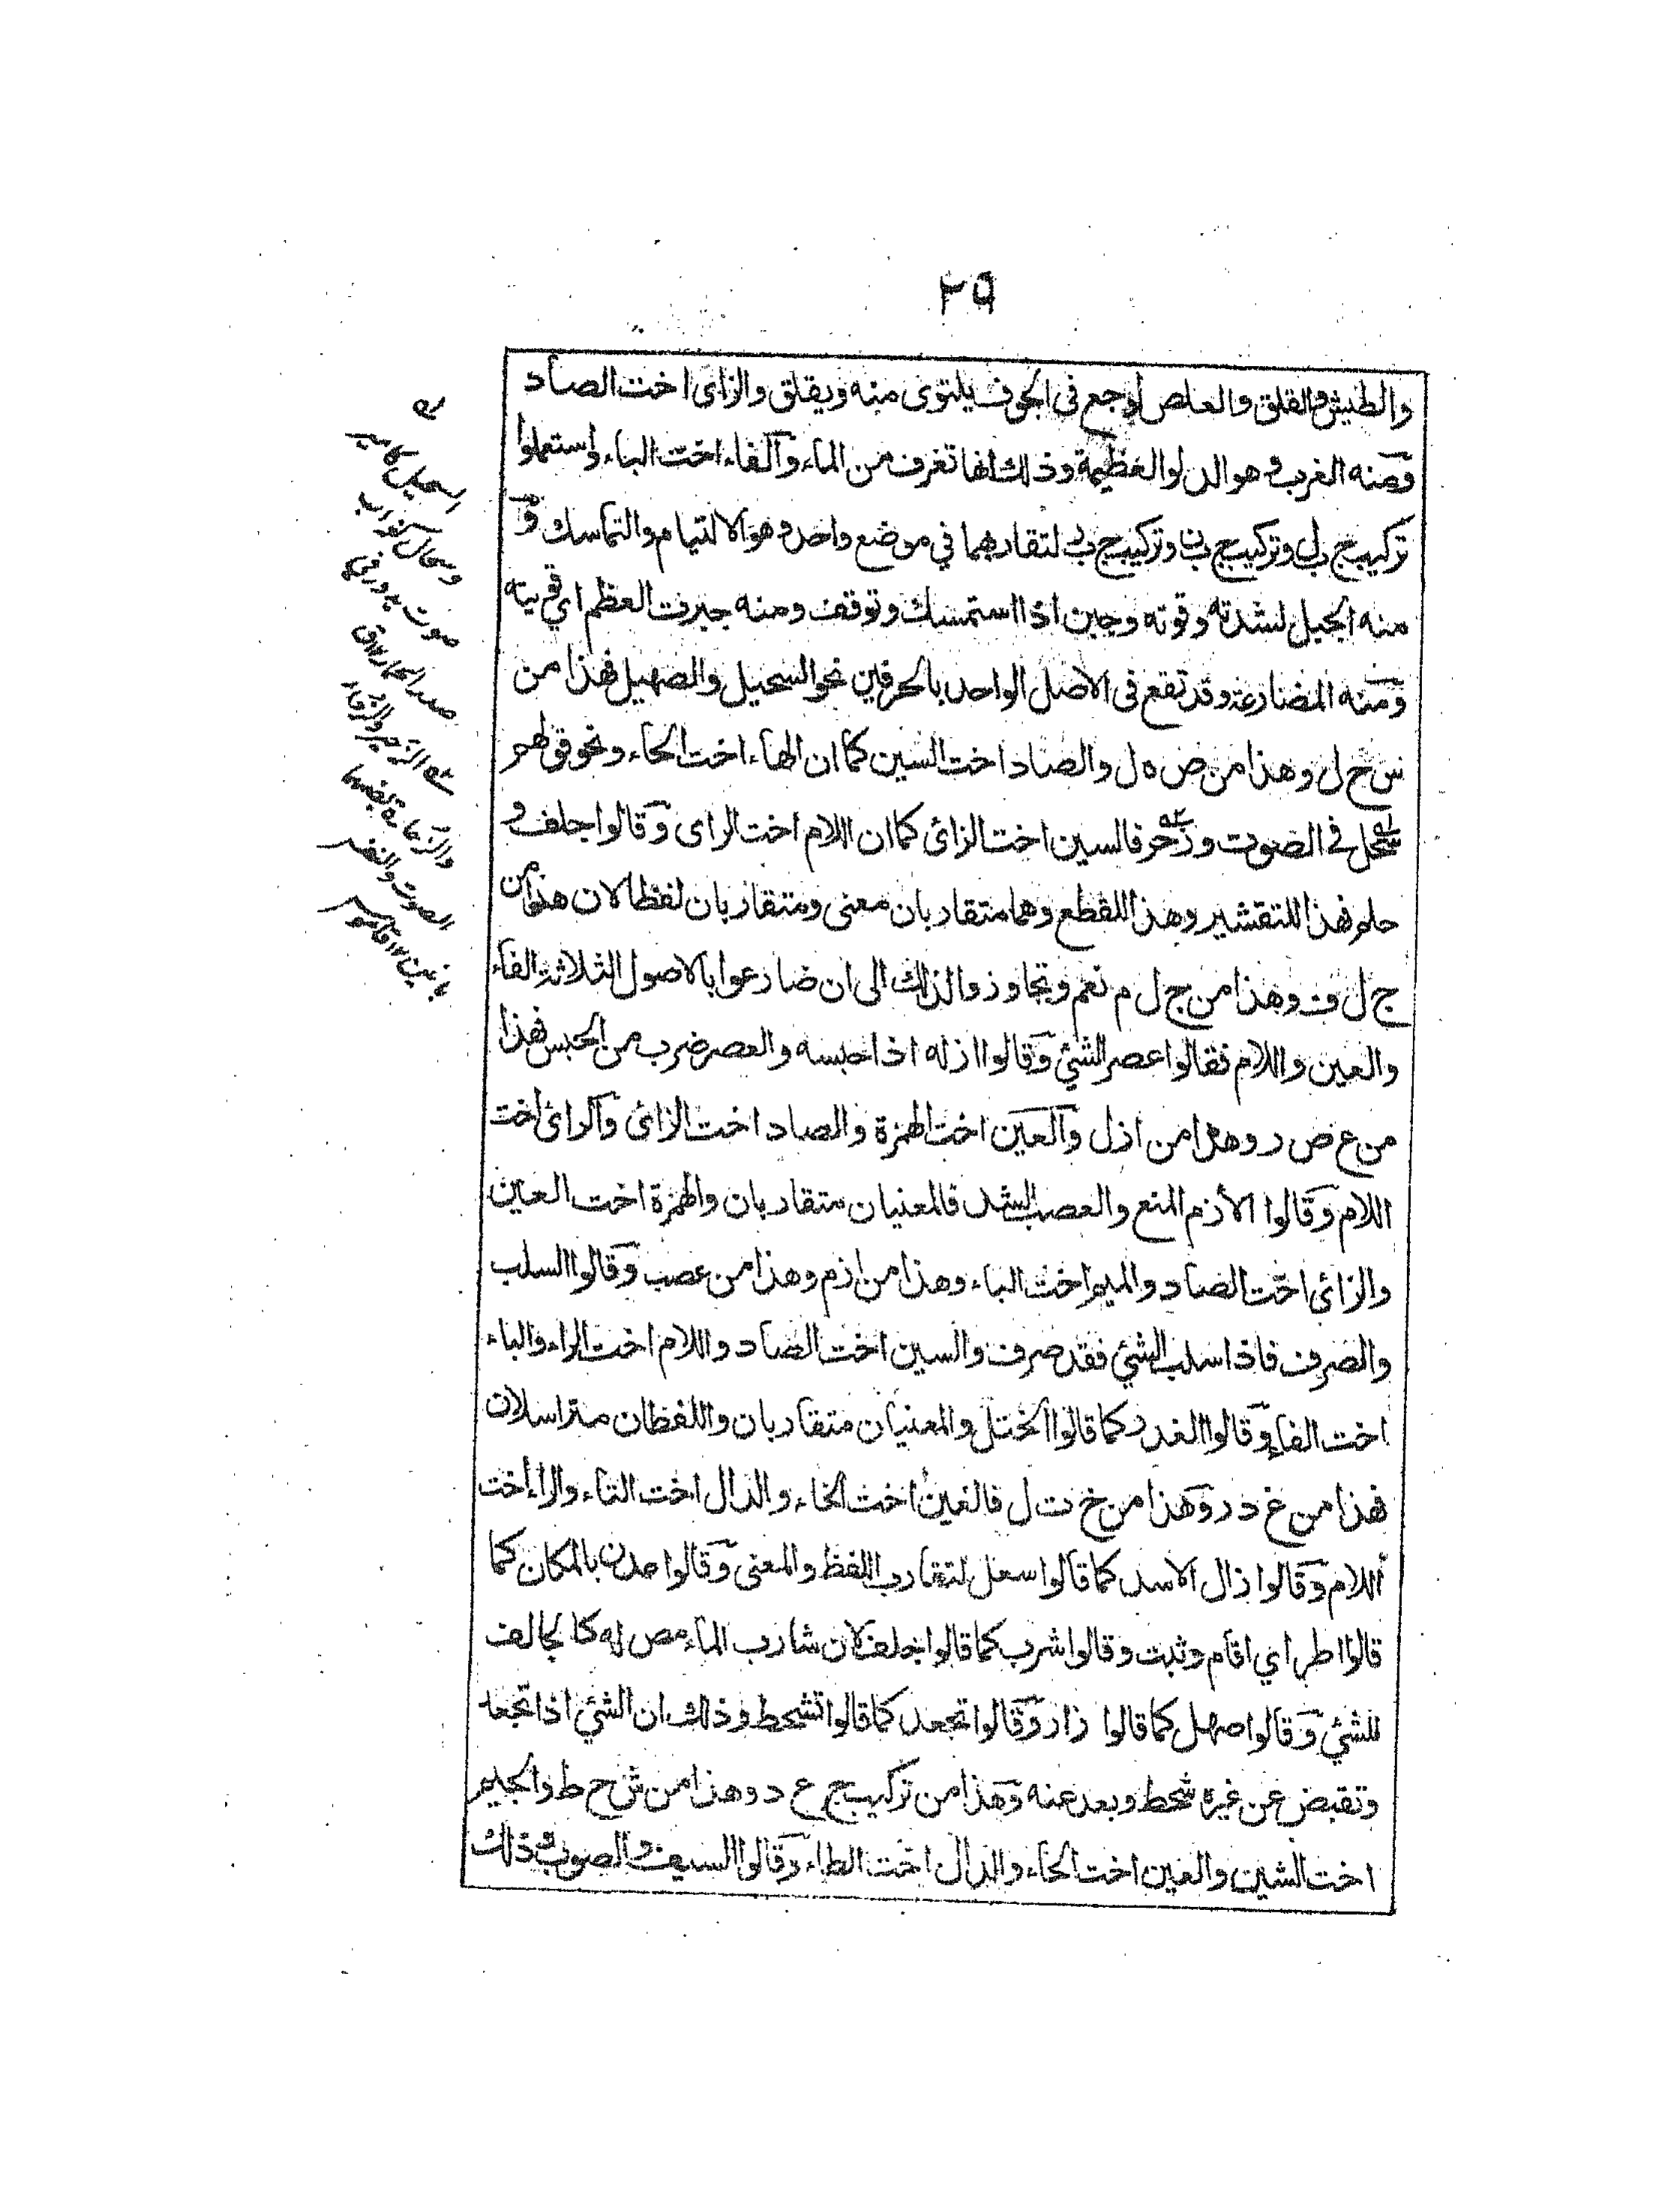 ٢٩
والطيش والقلق والعلص لوجع فى الجوف يلتوى منه ويقلق والزاى اخت الصاد
ومنه الغرب وهو الدلو العظيمة وذلك لانها تغرف من الماء والفاء اخت الباء واستعملوا
تركيب ج ب ل وتركيب ج ب ن وتركيب ج ب ر لتقاربهما في موضع واحد وهو الالتيام والتماسك و
منه الجبل لشدته وقوته وجبن اذا استمسك وتوقف ومنه جبرت العظم اي قويته
ومنه المضارعة وقد تقع فى الاصل الواحد بالحرفين نحو السحيل والصهيل فهذا من
س ح ل وهذا من ص ه ل والصاد اخت السين كما ان الهاء اخت الحاء ونحو قولهم
سحل فى الصوت وزحر فالسين اخت الزائ كما ان اللام اخت الراى وقالوا جلف و
جلم فهذا للتقشير وهذا للقطع وهما متقاربان معنى ومتقاربان لفظا لان هذا من
ج ل ف وهذا من ج ل م نعم وتجاوزوا ذلك الى ان ضارعوا بالاصول الثلاثة الفاء
والعين واللام فقالوا عصر الشئ وقالوا ازله اذا حبسه والعصر ضرب من الحبس فهذا
من ع ص ر وهذا من ازل والعين اخت الهمزة والصاد اخت الزائ والرائ اخت
اللام وقالوا الأزم المنع والعصب الشد فالمعنيان متقاربان والهمزة اخت العين
والزائ اخت الصاد والميم اخت الباء وهذا من ازم وهذا من عصب وقالوا السلب
والصرف فاذا سلب الشئ فقد صرف والسين اخت الصاد واللام اخت الراء والباء
اخت الفاء وقالوا الغدر كما قالوا الختل والمعنيان متقاربان واللفظان متراسلان
فهذا من غ د ر وهذا من خ ت ل فالغين اخت الخاء والدال اخت التاء والراء اخت
اللام وقالوا زال الاسد كما قالوا سعل لتقارب اللفظ والمعنى وقالوا عدن بالمكان كما
قالوا اطر اي اقام وثبت وقالوا شرب كما قالوا جلف لان شارب الماء مص له كالجالف
للشئ وقالوا صهل كما قالوا زار وقالوا تجعد كما قالوا تشحط وذلك ان الشئ اذا تجعد
وتقبض عن غيره شحط وبعد عنه وهذا من تركيب ج ع د وهذا من ش ح ط والجيم
اخت الشين والعين اخت الحاء والدال اخت الطاء وقالوا السيف والصوب وذلك
السحيل كامير
وسحال كغراب
صوت يدور في
صدر الحمار ١٢ ق
الزحير والزحار
والزحارة بضمهما
الصوت والنفس
بانين ١٢ قاموس